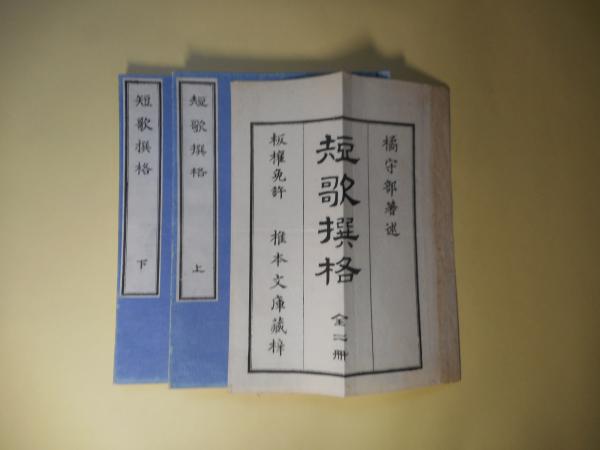 橘守部著述
短歌撰格 全二冊
板權免許 椎本文庫藏梓
短歌撰格 上
短歌撰格 下